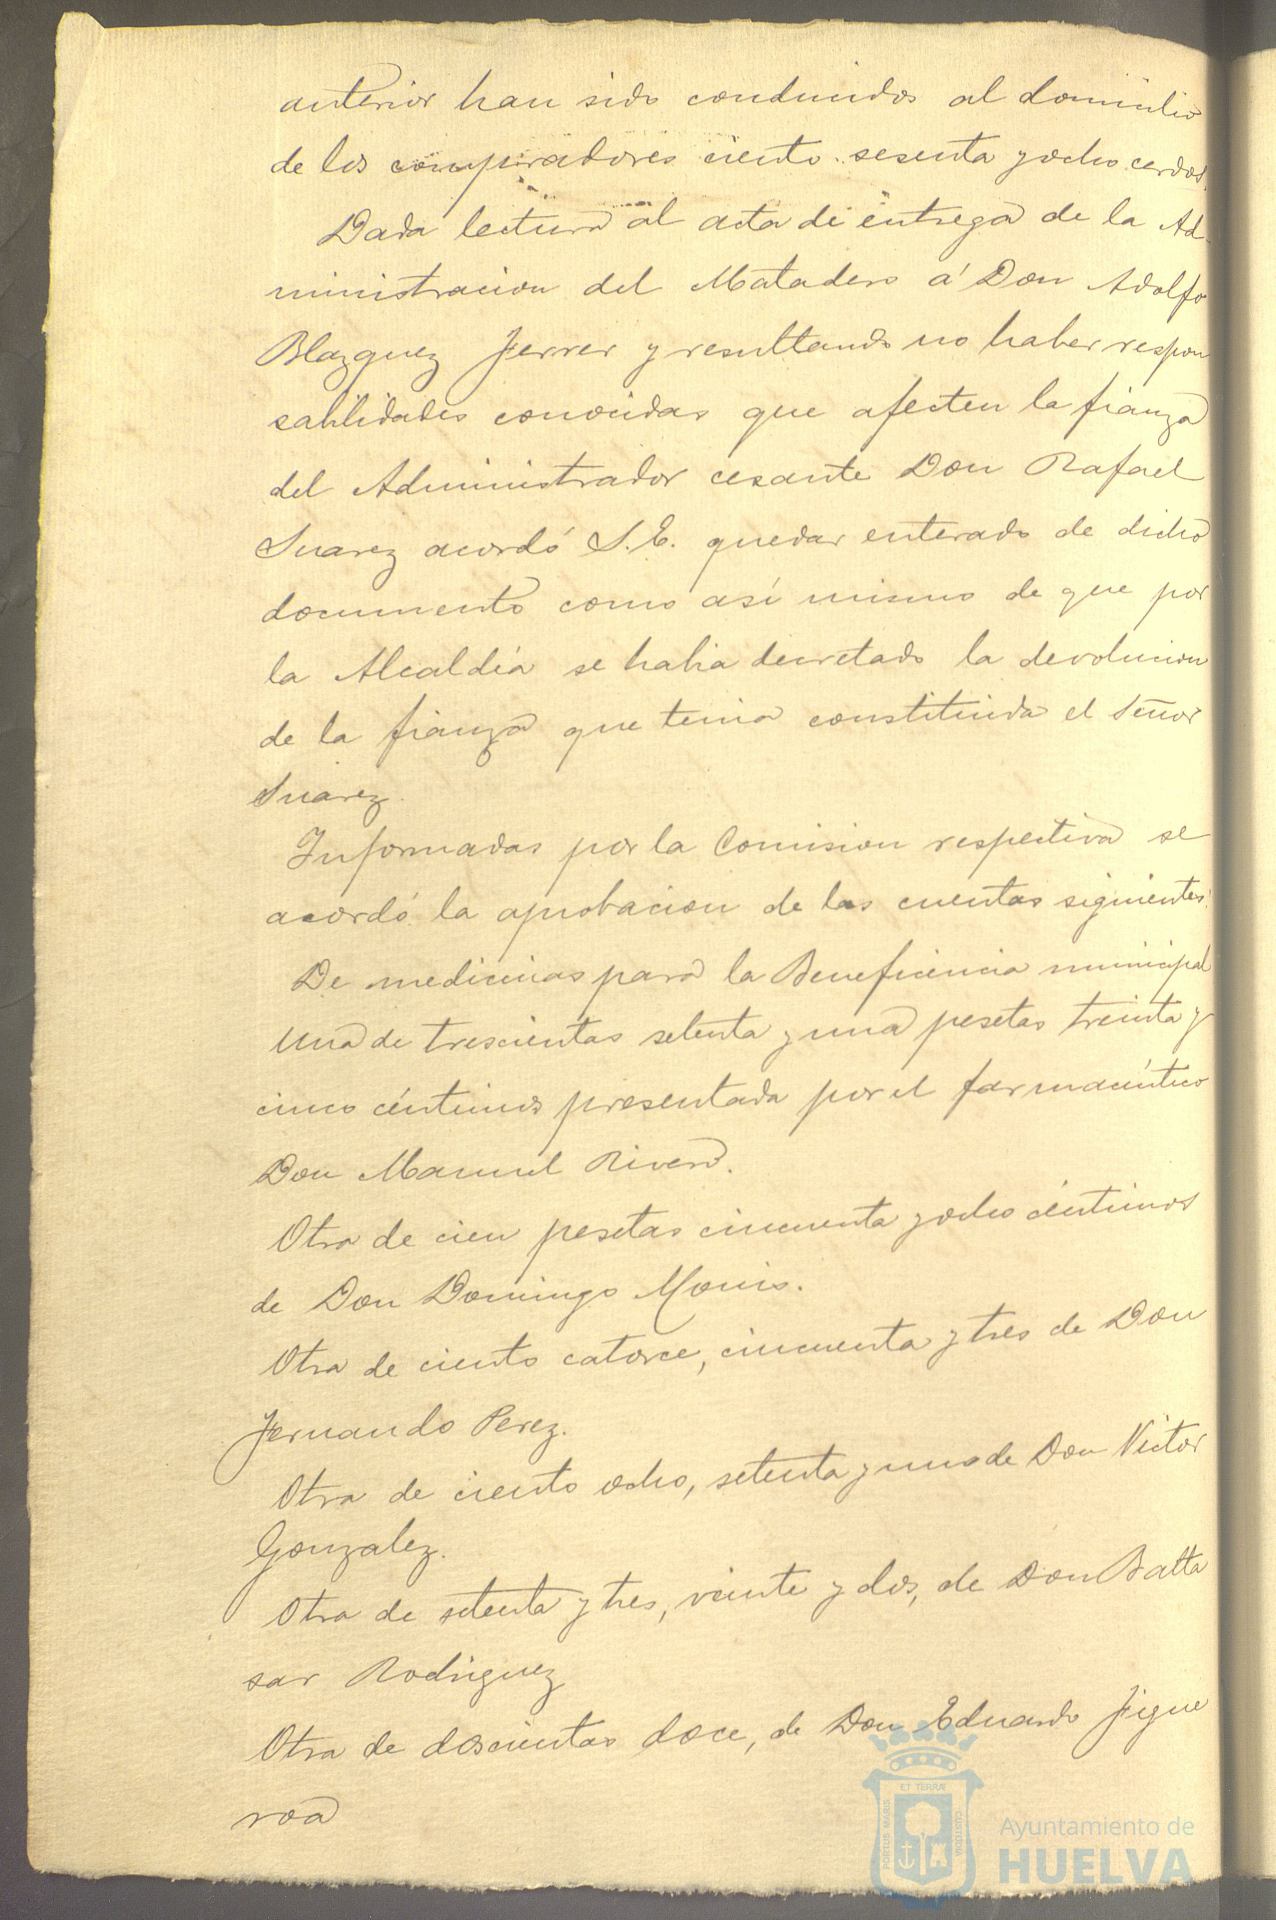 anterior han sido conducidos al domicilio
de los compradores ciento sesenta y ocho cerdos.
Dada lectura al acta de entrega de la Ad-
ministracion del Matadero á Don Adolfo
Blazquez Ferrer y resultando no haber respon
sabilidades conocidas que afecten la fianza
del Administrador cesante Don Rafael
Suarez acordó S.E. quedar enterado de dicho
documento como así mismo de que por
la Alcaldía se habia decretado la devolucion
de la fianza que tenia constituida el Señor
Suarez.
Informadas por la Comision respectiva se
acordó la aprobacion de las cuentas siguientes:
De medicinas para la Beneficencia municipal
una de trescientas setenta y una pesetas treinta y
cinco céntimos presentada por el farmacéutico
Don Manuel Rivero.
Otra de cien pesetas cincuenta y ocho céntimos
de Don Domingo Monis.
Otra de ciento catorce, cincuenta y tres de Don
Fernando Perez.
Otra de ciento ocho, setenta y uno de Don Victor
Gonzalez.
Otra de setenta y tres, veinte y dos, de Don Balta
sar Rodriguez
Otra de doscientas doce, de Don Eduardo Figue
roa
ET TERRÆ
PORTUS MARIS
CUSTODIA
Ayuntamiento de
HUELVA